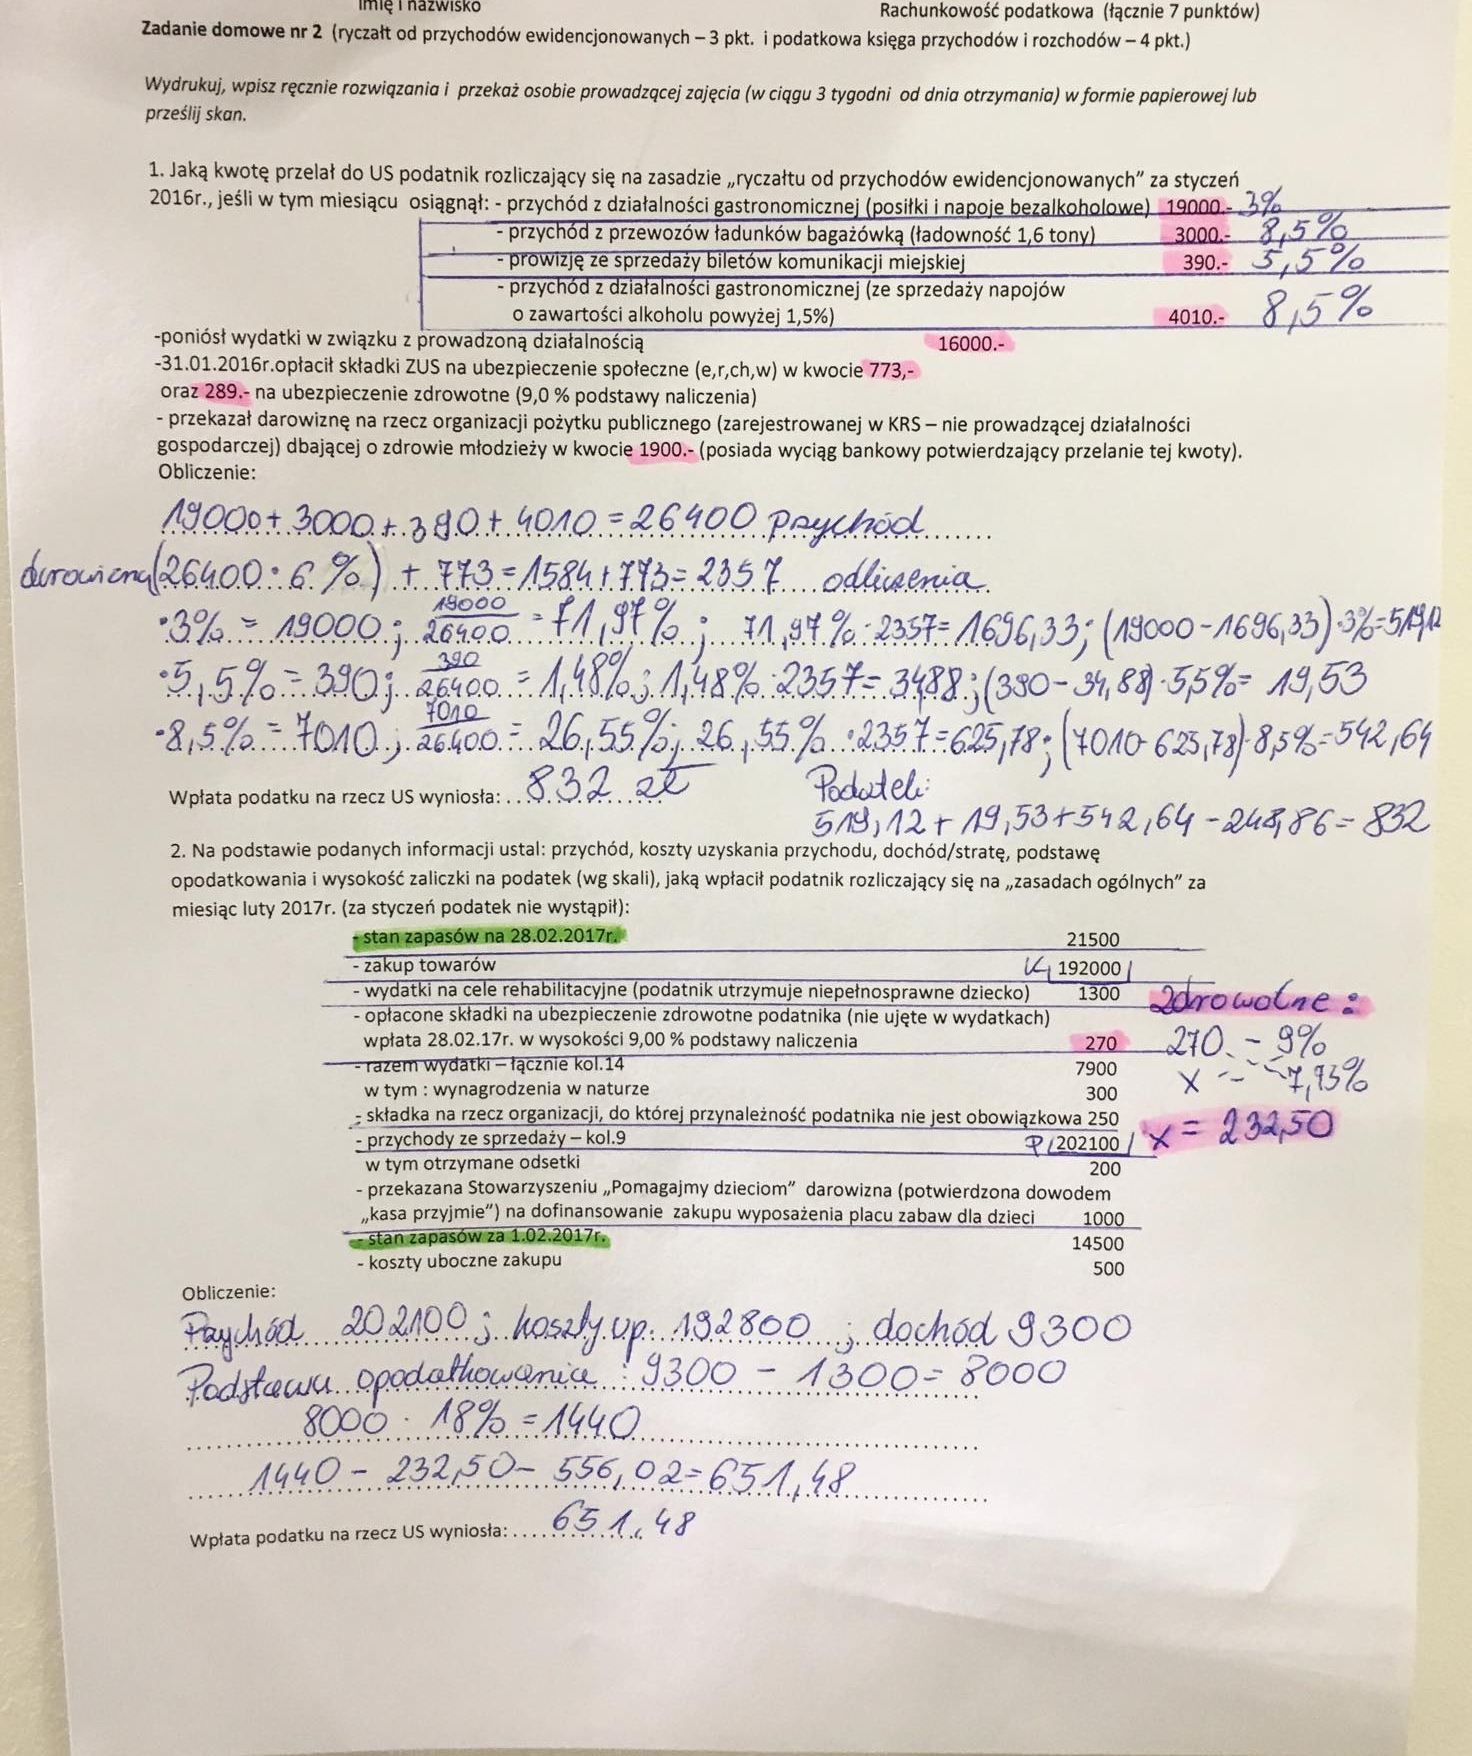 Imię i nazwisko
Rachunkowość podatkowa (łącznie 7 punktów)
Zadanie domowe nr 2 (ryczałt od przychodów ewidencjonowanych – 3 pkt. i podatkowa księga przychodów i rozchodów – 4 pkt.)
Wydrukuj, wpisz ręcznie rozwiązania i przekaż osobie prowadzącej zajęcia (w ciągu 3 tygodni od dnia otrzymania) w formie papierowej lub
prześlij skan.
1. Jaką kwotę przelał do US podatnik rozliczający się na zasadzie „ryczałtu od przychodów ewidencjonowanych” za styczeń
2016r., jeśli w tym miesiącu osiągnął: - przychód z działalności gastronomicznej (posiłki i napoje bezalkoholowe) 19000.- 3%
- przychód z przewozów ładunków bagażówką (ładowność 1,6 tony) 3000.- 8,5%
- prowizję ze sprzedaży biletów komunikacji miejskiej 390.- 5,5%
- przychód z działalności gastronomicznej (ze sprzedaży napojów
o zawartości alkoholu powyżej 1,5%) 4010.- 8,5%
-poniósł wydatki w związku z prowadzoną działalnością 16000.-
-31.01.2016r.opłacił składki ZUS na ubezpieczenie społeczne (e,r,ch,w) w kwocie 773,-
oraz 289.- na ubezpieczenie zdrowotne (9,0 % podstawy naliczenia)
- przekazał darowiznę na rzecz organizacji pożytku publicznego (zarejestrowanej w KRS – nie prowadzącej działalności
gospodarczej) dbającej o zdrowie młodzieży w kwocie 1900.- (posiada wyciąg bankowy potwierdzający przelanie tej kwoty).
Obliczenie:
19000 + 3000 + 390 + 4010 = 26400 przychód
darowizna (26400 · 6 %) + 773 = 1584 + 773 = 2357 odliczenia
·3% = 19000; 19000/26400 = 71,97%; 71,97% · 2357 = 1696,33; (19000 - 1696,33) · 3% = 519,12
·5,5% = 390; 390/26400 = 1,48%; 1,48% · 2357 = 34,88; (390 - 34,88) · 5,5% = 19,53
·8,5% = 7010; 7010/26400 = 26,55%; 26,55% · 2357 = 625,78; (7010 - 625,78) · 8,5% = 542,64
Wpłata podatku na rzecz US wyniosła: 832 zł
Podatek:
519,12 + 19,53 + 542,64 - 248,86 = 832
2. Na podstawie podanych informacji ustal: przychód, koszty uzyskania przychodu, dochód/stratę, podstawę
opodatkowania i wysokość zaliczki na podatek (wg skali), jaką wpłacił podatnik rozliczający się na „zasadach ogólnych” za
miesiąc luty 2017r. (za styczeń podatek nie wystąpił):
- stan zapasów na 28.02.2017r. 21500
- zakup towarów K 192000
- wydatki na cele rehabilitacyjne (podatnik utrzymuje niepełnosprawne dziecko) 1300
- opłacone składki na ubezpieczenie zdrowotne podatnika (nie ujęte w wydatkach)
wpłata 28.02.17r. w wysokości 9,00 % podstawy naliczenia 270
- razem wydatki – łącznie kol.14 7900
w tym : wynagrodzenia w naturze 300
- składka na rzecz organizacji, do której przynależność podatnika nie jest obowiązkowa 250
- przychody ze sprzedaży – kol.9 P 202100
w tym otrzymane odsetki 200
- przekazana Stowarzyszeniu „Pomagajmy dzieciom” darowizna (potwierdzona dowodem
„kasa przyjmie”) na dofinansowanie zakupu wyposażenia placu zabaw dla dzieci 1000
- stan zapasów za 1.02.2017r. 14500
- koszty uboczne zakupu 500
Zdrowotne:
270 - 9%
x - 7,75%
x = 232,50
Obliczenie:
Przychód 202100; koszty up. 192800; dochód 9300
Podstawa opodatkowania: 9300 - 1300 = 8000
8000 · 18% = 1440
1440 - 232,50 - 556,02 = 651,48
Wpłata podatku na rzecz US wyniosła: 651,48